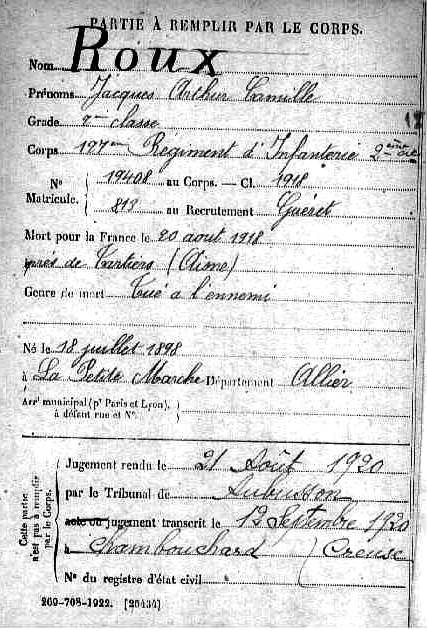 PARTIE À REMPLIR PAR LE CORPS.
Nom ROUX
Prénoms Jacques Arthur Camille
Grade 2me classe
Corps Régiment d'Infanterie
No 19408 au Corps. — Cl. 1918
Matricule. 813 au Recrutement Guéret
Mort pour la France le 20 août 1918
près de Tartiers (Aisne)
Genre de mort Tué à l'ennemi
Né le 18 juillet 1898
à La Petite Marche Département Allier
Arrt municipal (pr Paris et Lyon),
à défaut rue et No.
Cette partie
n'est pas à remplir
par le Corps.
Jugement rendu le 21 Août 1920
par le Tribunal de Aubusson
acte ou jugement transcrit le 12 Septembre 1920
à Chambouchard (Creuse
No du registre d'état civil
269-708-1922. [26434]